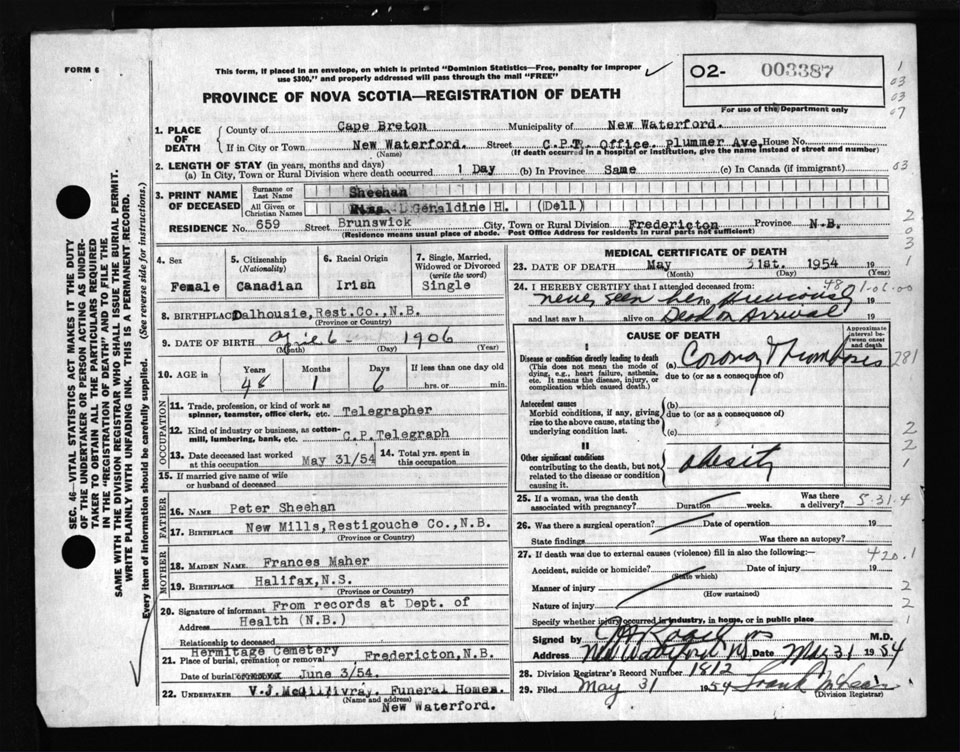 FORM 6
This form, if placed in an envelope, on which is printed "Dominion Statistics—Free, penalty for improper
use $300," and properly addressed will pass through the mail "FREE"
02- 003387
For use of the Department only
1
03
03
07
PROVINCE OF NOVA SCOTIA—REGISTRATION OF DEATH
1. PLACE OF DEATH
County of Cape Breton Municipality of New Waterford.
If in City or Town New Waterford. Street C.P.T. Office. plummer Ave, House No.
(Name) (If death occurred in a hospital or institution, give the name instead of street and number)
2. LENGTH OF STAY (in years, months and days)
(a) In City, Town or Rural Division where death occurred 1 Day (b) In Province Same (c) In Canada (if immigrant) 03
3. PRINT NAME OF DECEASED
Surname or Last Name Sheehan
All Given or Christian Names Geraldine H. (Dell)
RESIDENCE No. 659 Street Brunswick City, Town or Rural Division Fredericton Province N.B.
(Residence means usual place of abode. Post Office Address for residents in rural parts not sufficient)
2
0
3
4. Sex Female
5. Citizenship (Nationality) Canadian
6. Racial Origin Irish
7. Single, Married, Widowed or Divorced (write the word) Single
8. BIRTHPLACE Dalhousie, Rest.Co., N.B.
(Province or Country)
9. DATE OF BIRTH April 6 1906
(Month) (Day) (Year)
10. AGE in Years Months Days If less than one day old
48 1 6 hrs. or min.
OCCUPATION
11. Trade, profession, or kind of work as
spinner, teamster, office clerk, etc. Telegrapher
12. Kind of industry or business, as cotton-
mill, lumbering, bank, etc. C.P.Telegraph
13. Date deceased last worked at this occupation May 31/54
14. Total yrs. spent in this occupation
15. If married give name of wife
or husband of deceased
FATHER
16. NAME Peter Sheehan
17. BIRTHPLACE New Mills, Restigouche Co., N.B.
(Province or Country)
MOTHER
18. MAIDEN NAME Frances Maher
19. BIRTHPLACE Halifax, N.S.
(Province or Country)
20. Signature of informant From records at Dept. of
Address Health (N.B.)
Relationship to deceased
Hermitage Cemetery
21. Place of burial, cremation or removal Fredericton, N.B.
Date of burial June 3/54.
22. UNDERTAKER V.J. McGillivray. Funeral Homes.
(Name and address)
New Waterford.
MEDICAL CERTIFICATE OF DEATH
23. DATE OF DEATH May 31st. 1954 19
(Month) (Day) (Year)
1
24. I HEREBY CERTIFY that I attended deceased from: 48 1-01-00
never seen her 19 previously 19
and last saw h alive on Dead on Arrival 19
CAUSE OF DEATH
Approximate interval between onset and death
I
Disease or condition directly leading to death
(This does not mean the mode of
dying, e.g., heart failure, asthenia,
etc. It means the disease, injury, or
complication which caused death.)
(a) Coronary Thrombosis 281
due to (or as a consequence of)
Antecedent causes
Morbid conditions, if any, giving
rise to the above cause, stating the
underlying condition last.
(b)
due to (or as a consequence of)
(c)
II
Other significant conditions
contributing to the death, but not
related to the disease or condition
causing it.
obesity
2
2
1
25. If a woman, was the death
associated with pregnancy? Duration weeks. Was there a delivery? 5-31-4
26. Was there a surgical operation? Date of operation 19
State findings Was there an autopsy?
27. If death was due to external causes (violence) fill in also the following: 420.1
Accident, suicide or homicide? Date of injury 19
(State which)
Manner of injury 2
(How sustained)
Nature of injury 2
Specify whether injury occurred in industry, in home, or in public place 1
Signed by M.D.
Address New Waterford NS Date May 31 1954
28. Division Registrar's Record Number 1812
29. Filed May 31 1954 Frank McLean
(Division Registrar)
SEC. 46—VITAL STATISTICS ACT MAKES IT THE DUTY
OF THE UNDERTAKER OR PERSON ACTING AS UNDER-
TAKER TO OBTAIN ALL THE PARTICULARS REQUIRED
IN THE "REGISTRATION OF DEATH" AND TO FILE THE
SAME WITH THE DIVISION REGISTRAR WHO SHALL ISSUE THE BURIAL PERMIT.
WRITE PLAINLY WITH UNFADING INK. THIS IS A PERMANENT RECORD.
Every item of information should be carefully supplied. (See reverse side for instructions.)